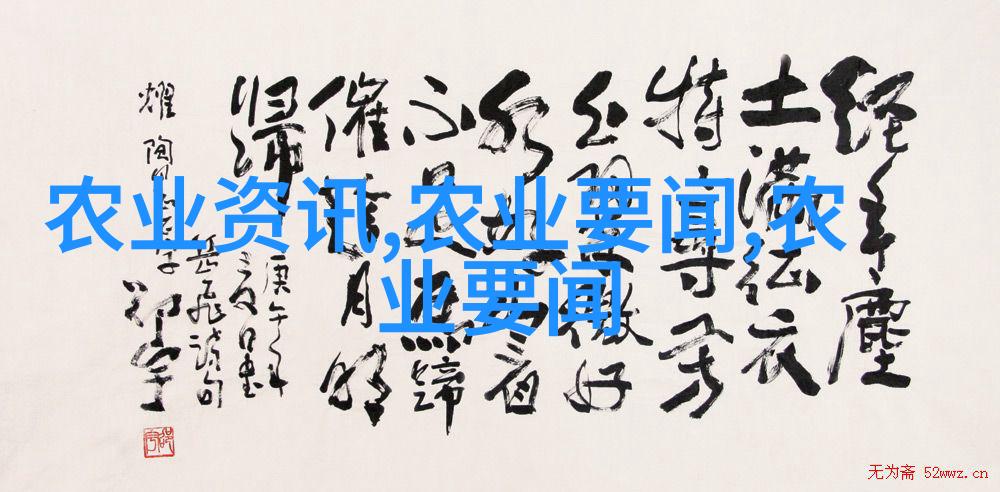 經年塵
土滿征衣
特特尋芳
上翠微好
水好山看
不足馬蹄
催趁月明
歸
庚午年
夏日書
岳飛詩句
农业资讯,农业要闻,农
业要闻
无为斋 52wwz.cn